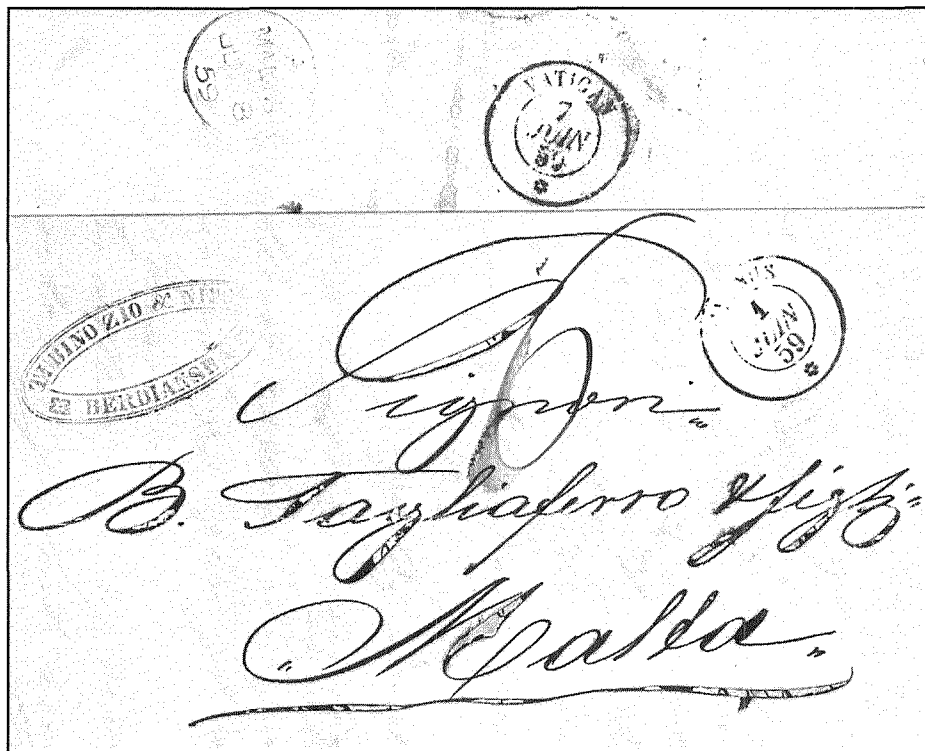 MALTA
JU 8
59
VATICAN
7
JUIN
59
TUBINO ZIO & NIPO
BERDIANSK
1
JUIN
59
Signori
B. Tagliaferro & figli
Malta